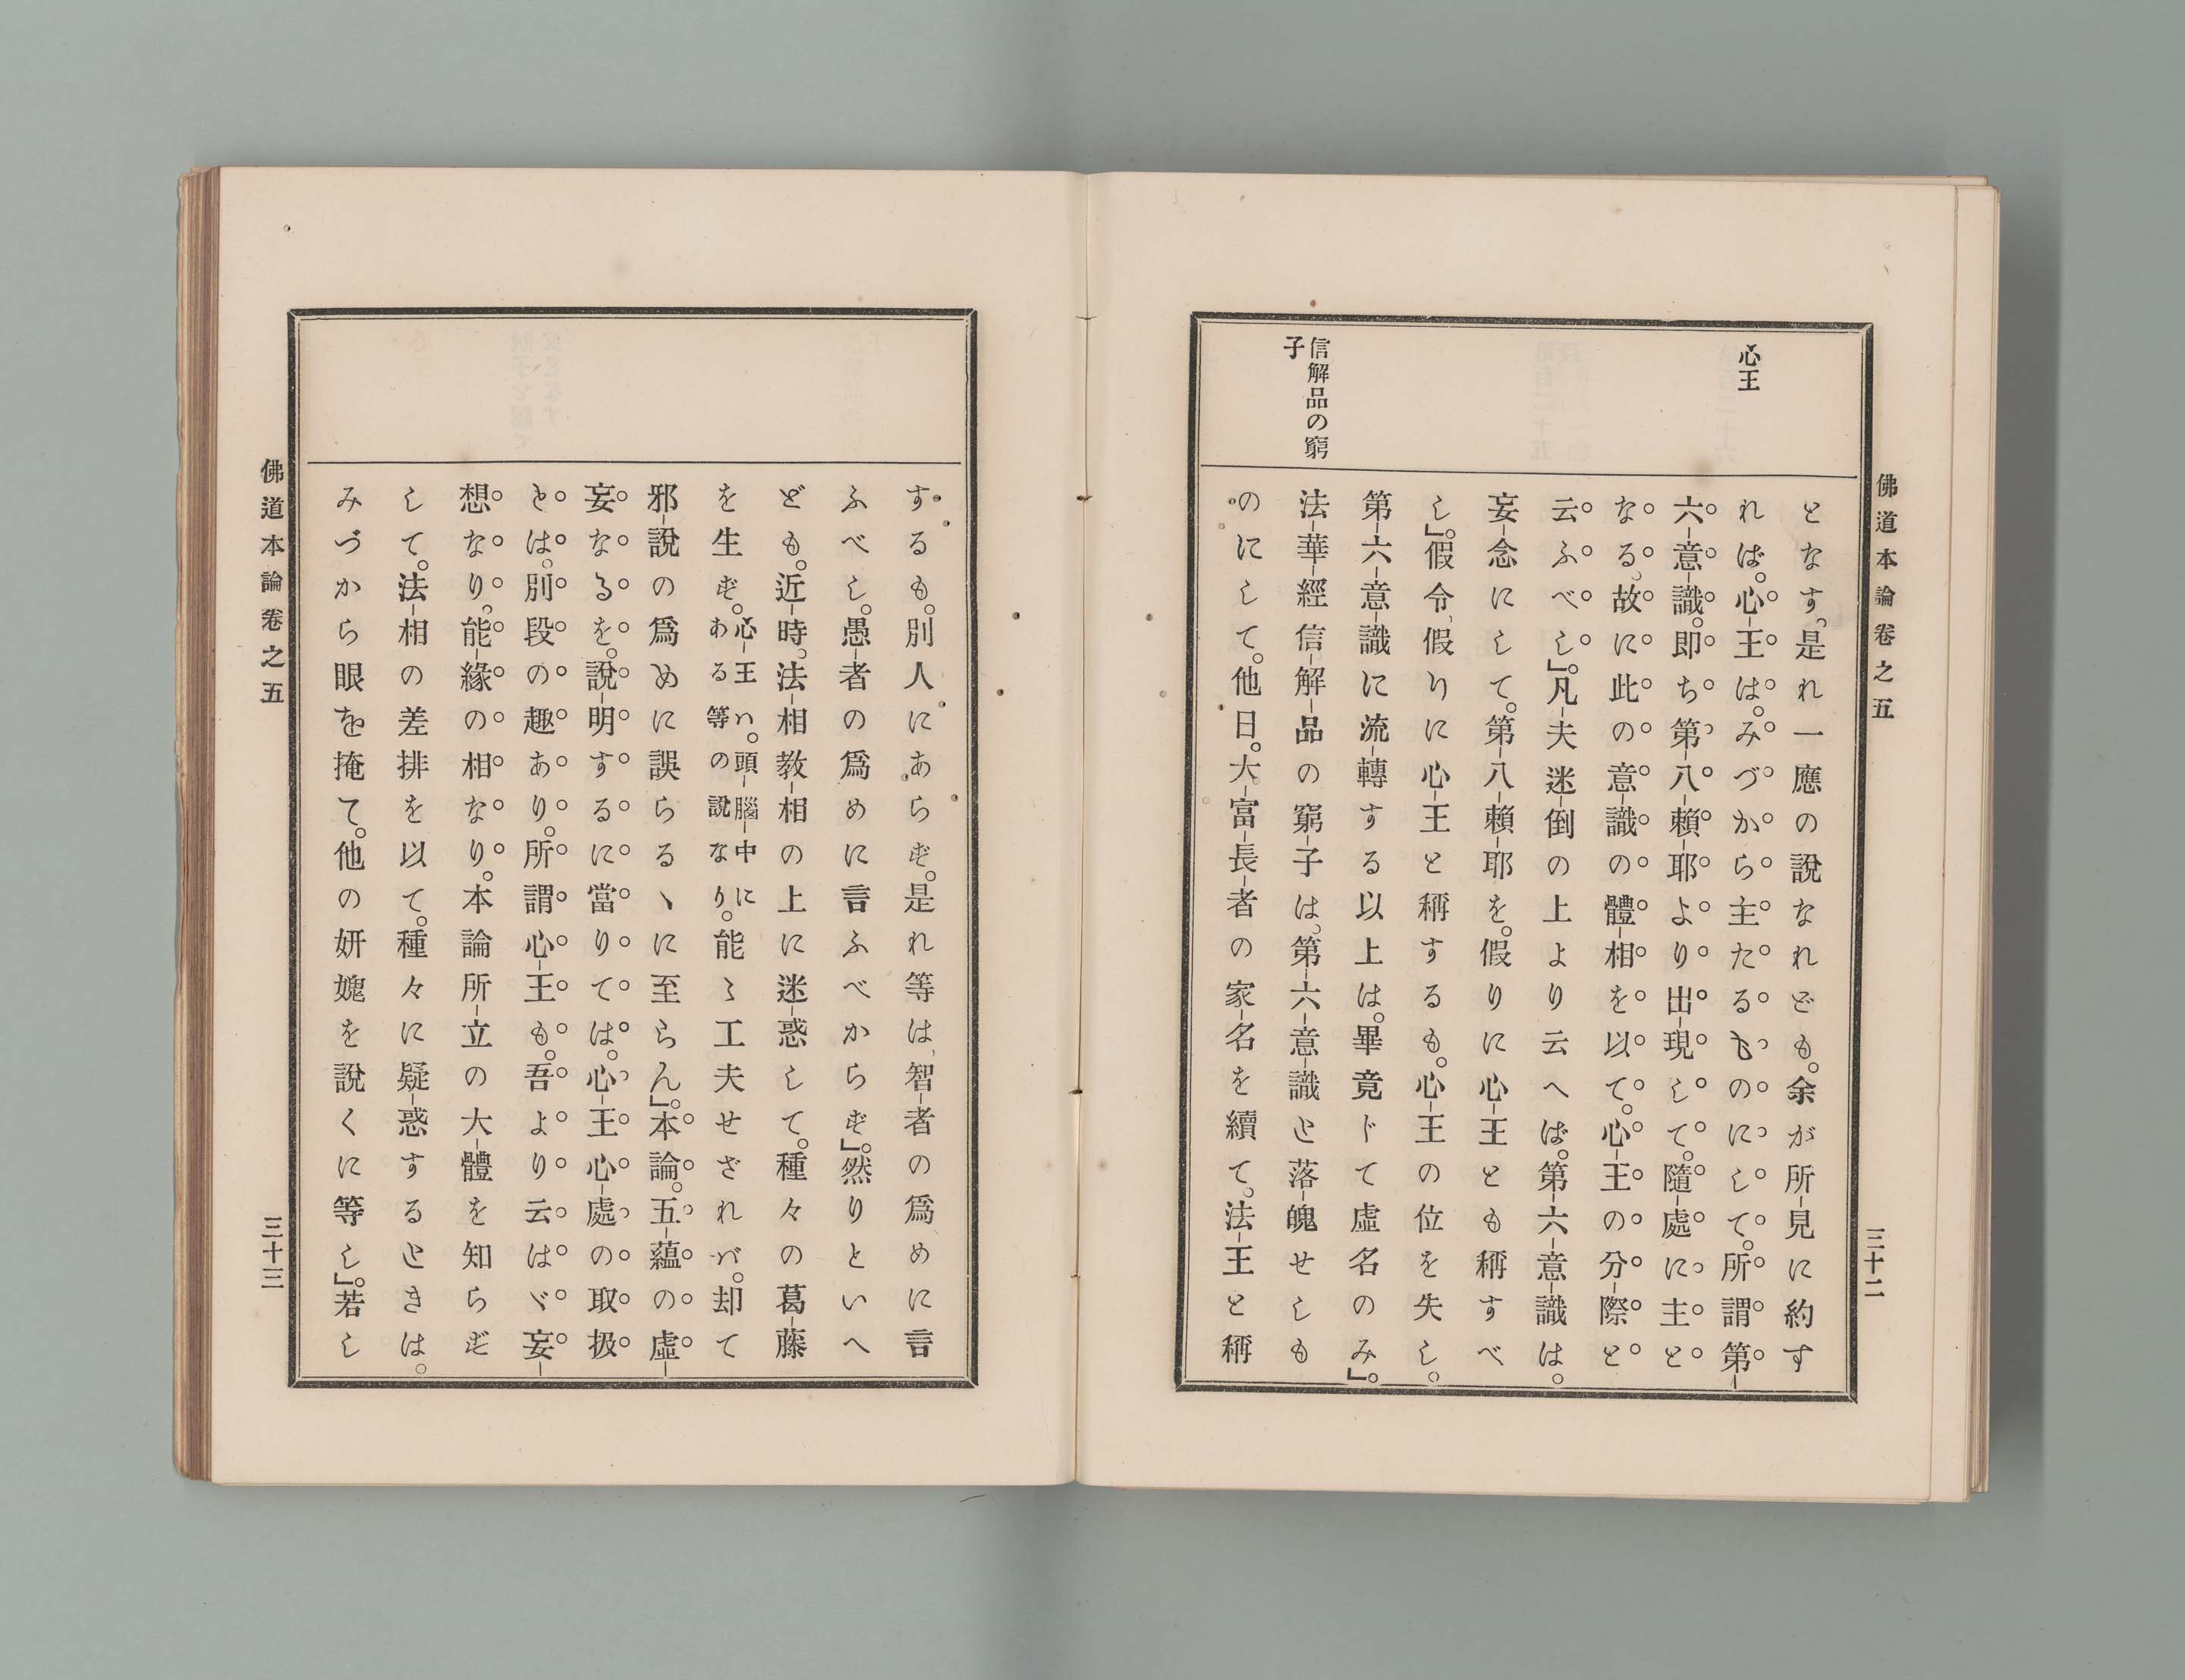 佛道本論卷之五
三十二
心王
信解品の窮
子
となす。是れ一應の說なれども。余が所見に約す
れば。心王は。みづから主たるものにして。所謂第
六意識。即ち第八賴耶より出現して。隨處に主と
なる。故に此の意識の體相を以て。心王の分際と
云ふべし」。凡夫迷倒の上より云へば。第六意識は。
妄念にして。第八賴耶を。假りに心王とも稱すべ
し」。假令、假りに心王と稱するも。心王の位を失し。
第六意識に流轉する以上は。畢竟じて虛名のみ」。
法華經信解品の窮子は。第六意識と落魄せしも
のにして。他日。大富長者の家名を續て。法王と稱
するも。別人にあらず。是れ等は、智者の爲めに言
ふべし。愚者の爲めに言ふべからず」。然りといへ
ども。近時。法相敎相の上に迷惑して。種々の葛藤
を生ず。心王ハ。頭腦中に
ある等の說なり。能く工夫せざれバ。却て
邪說の爲めに誤らるゝに至らん」。本論。五蘊の虛
妄なるを。說明するに當りては。心王心處の取扱
とは。別段の趣あり。所謂心王も。吾より云はゞ妄
想なり。能緣の相なり。本論所立の大體を知らず
して。法相の差排を以て。種々に疑惑するときは。
みづから眼を掩て。他の妍媸を說くに等し」。若し
佛道本論卷之五
三十三